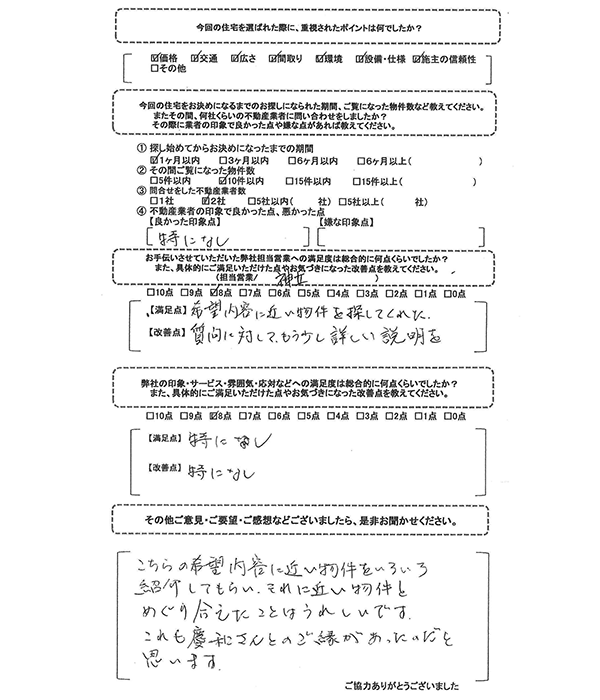 今回の住宅を選ばれた際に、重視されたポイントは何でしたか？
☑価格 ☑交通 ☑広さ ☑間取り ☑環境 ☑設備・仕様 ☑施主の信頼性
□その他
今回の住宅をお決めになるまでのお探しになられた期間、ご覧になった物件数など教えてください。
またその間、何社くらいの不動産業者に問い合わせをしましたか？
その際に業者の印象で良かった点や嫌な点があれば教えてください。
① 探し始めてからお決めになったまでの期間
☑1ヶ月以内 □3ヶ月以内 □6ヶ月以内 □6ヶ月以上( )
② その間ご覧になった物件数
□5件以内 ☑10件以内 □15件以内 □15件以上( )
③ 問合せをした不動産業者数
□1社 ☑2社 □5社以内( 社) □5社以上( 社)
④ 不動産業者の印象で良かった点、悪かった点
【良かった印象点】 【嫌な印象点】
特になし
お手伝いさせていただいた弊社担当営業への満足度は総合的に何点くらいでしたか？
また、具体的にご満足いただけた点やお気づきになった改善点を教えてください。
(担当営業/ )
□10点 □9点 ☑8点 □7点 □6点 □5点 □4点 □3点 □2点 □1点 □0点
【満足点】希望内容に近い物件を探してくれた.
【改善点】質問に対して、もう少し詳しい説明を
弊社の印象・サービス・雰囲気・応対などへの満足度は総合的に何点くらいでしたか？
また、具体的にご満足いただけた点やお気づきになった改善点を教えてください。
□10点 □9点 ☑8点 □7点 □6点 □5点 □4点 □3点 □2点 □1点 □0点
【満足点】 特になし
【改善点】 特になし
その他ご意見・ご要望・ご感想などございましたら、是非お聞かせください。
こちらの希望内容に近い物件をいろいろ
紹介してもらい、それに近い物件と
めぐり合えたことはうれしいです.
これも慶和さんとのご縁があったのだと
思います.
ご協力ありがとうございました